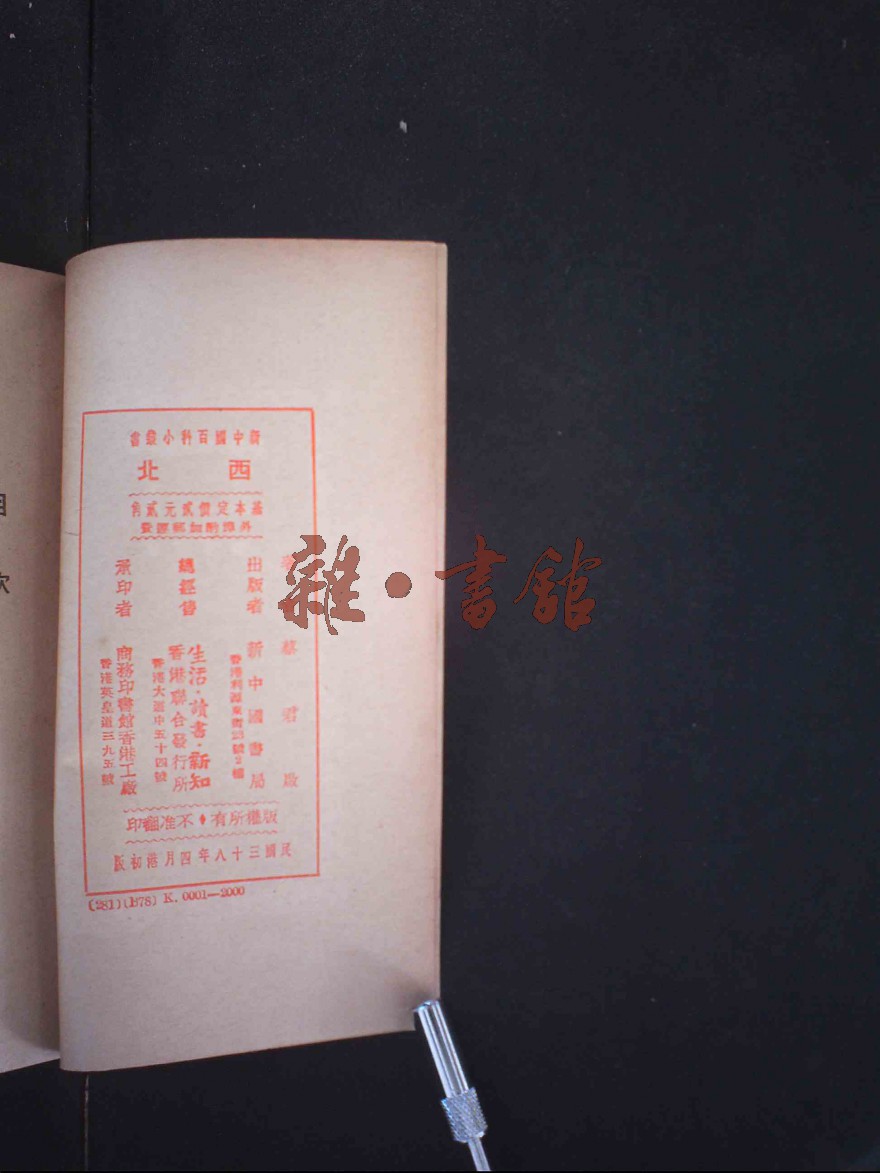 新中國百科小叢書
西北
基本定價貳元貳角
外埠酌加郵運費
著
蔡君啟
出版者
新中國書局
香港利源東街23號2樓
總經售
生活·讀書·新知
香港聯合發行所
香港大道中五十四號
承印者
商務印書館香港工廠
香港英皇道三九五號
版權所有♦不准翻印
民國三十八年四月港初版
(281)(B78) K. 0001—2000
雜·書館